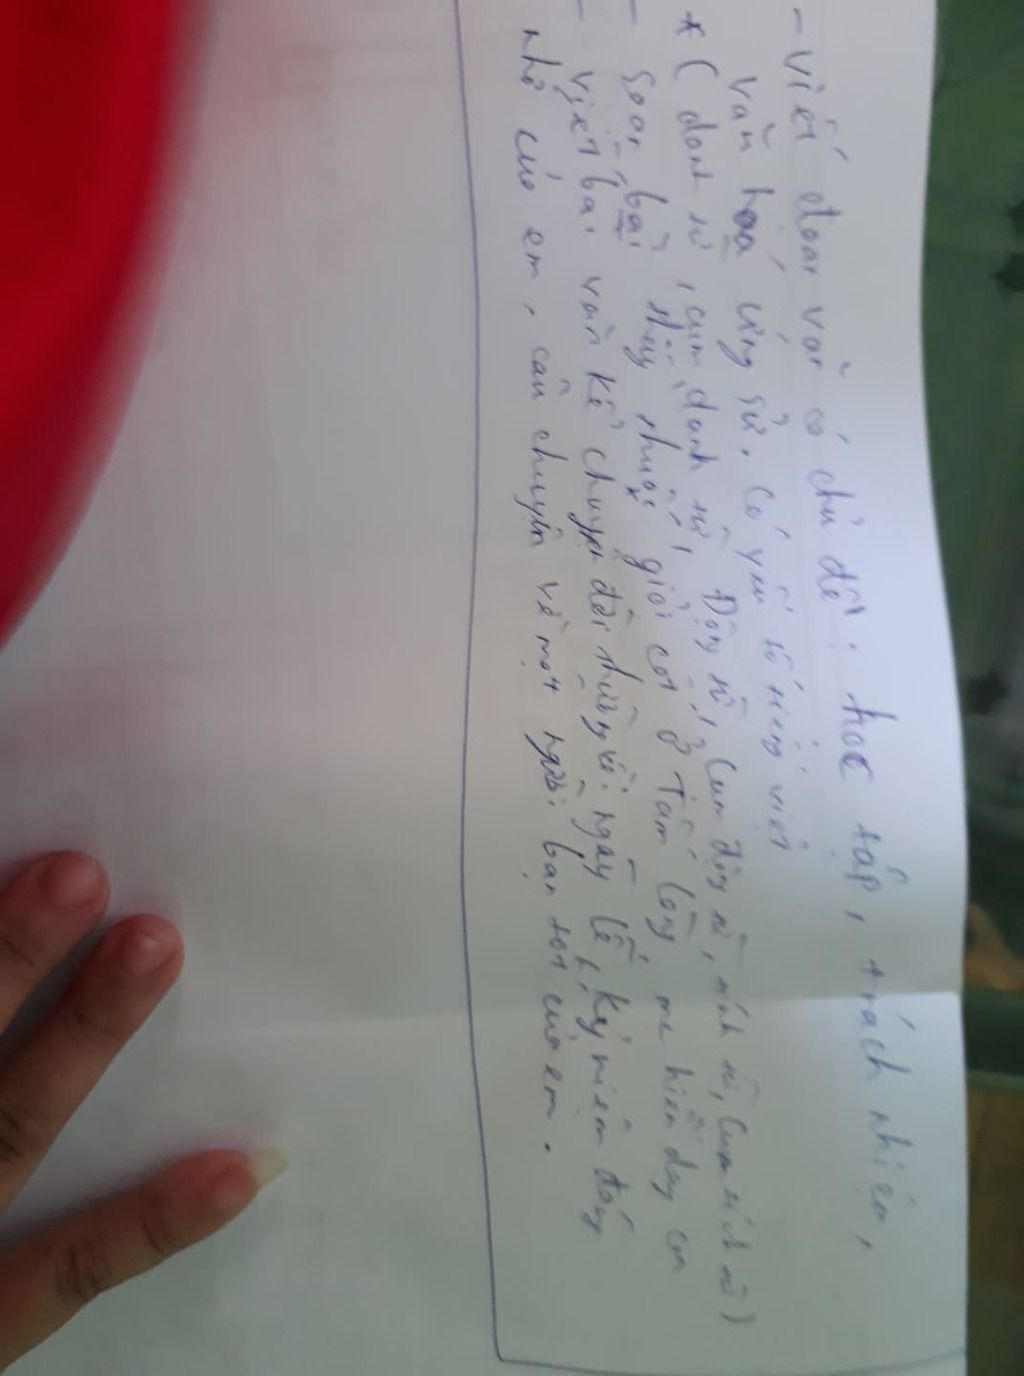 - viết đoạn văn có chủ đề: học tập, trách nhiệm,
văn hoá ứng sử. có yếu tố tiếng việt
* ( danh từ, cụm danh từ, Động từ, Cụm động từ, tính từ, Cụm tính từ )
- soạn bài thầy thuốc giỏi cốt ở Tấm lòng, mẹ hiền dạy con
- viết bài văn kể chuyện đời thường về: ngày lễ, kỷ niệm đáng
nhớ của em, câu chuyện về một người bạn tốt của em.